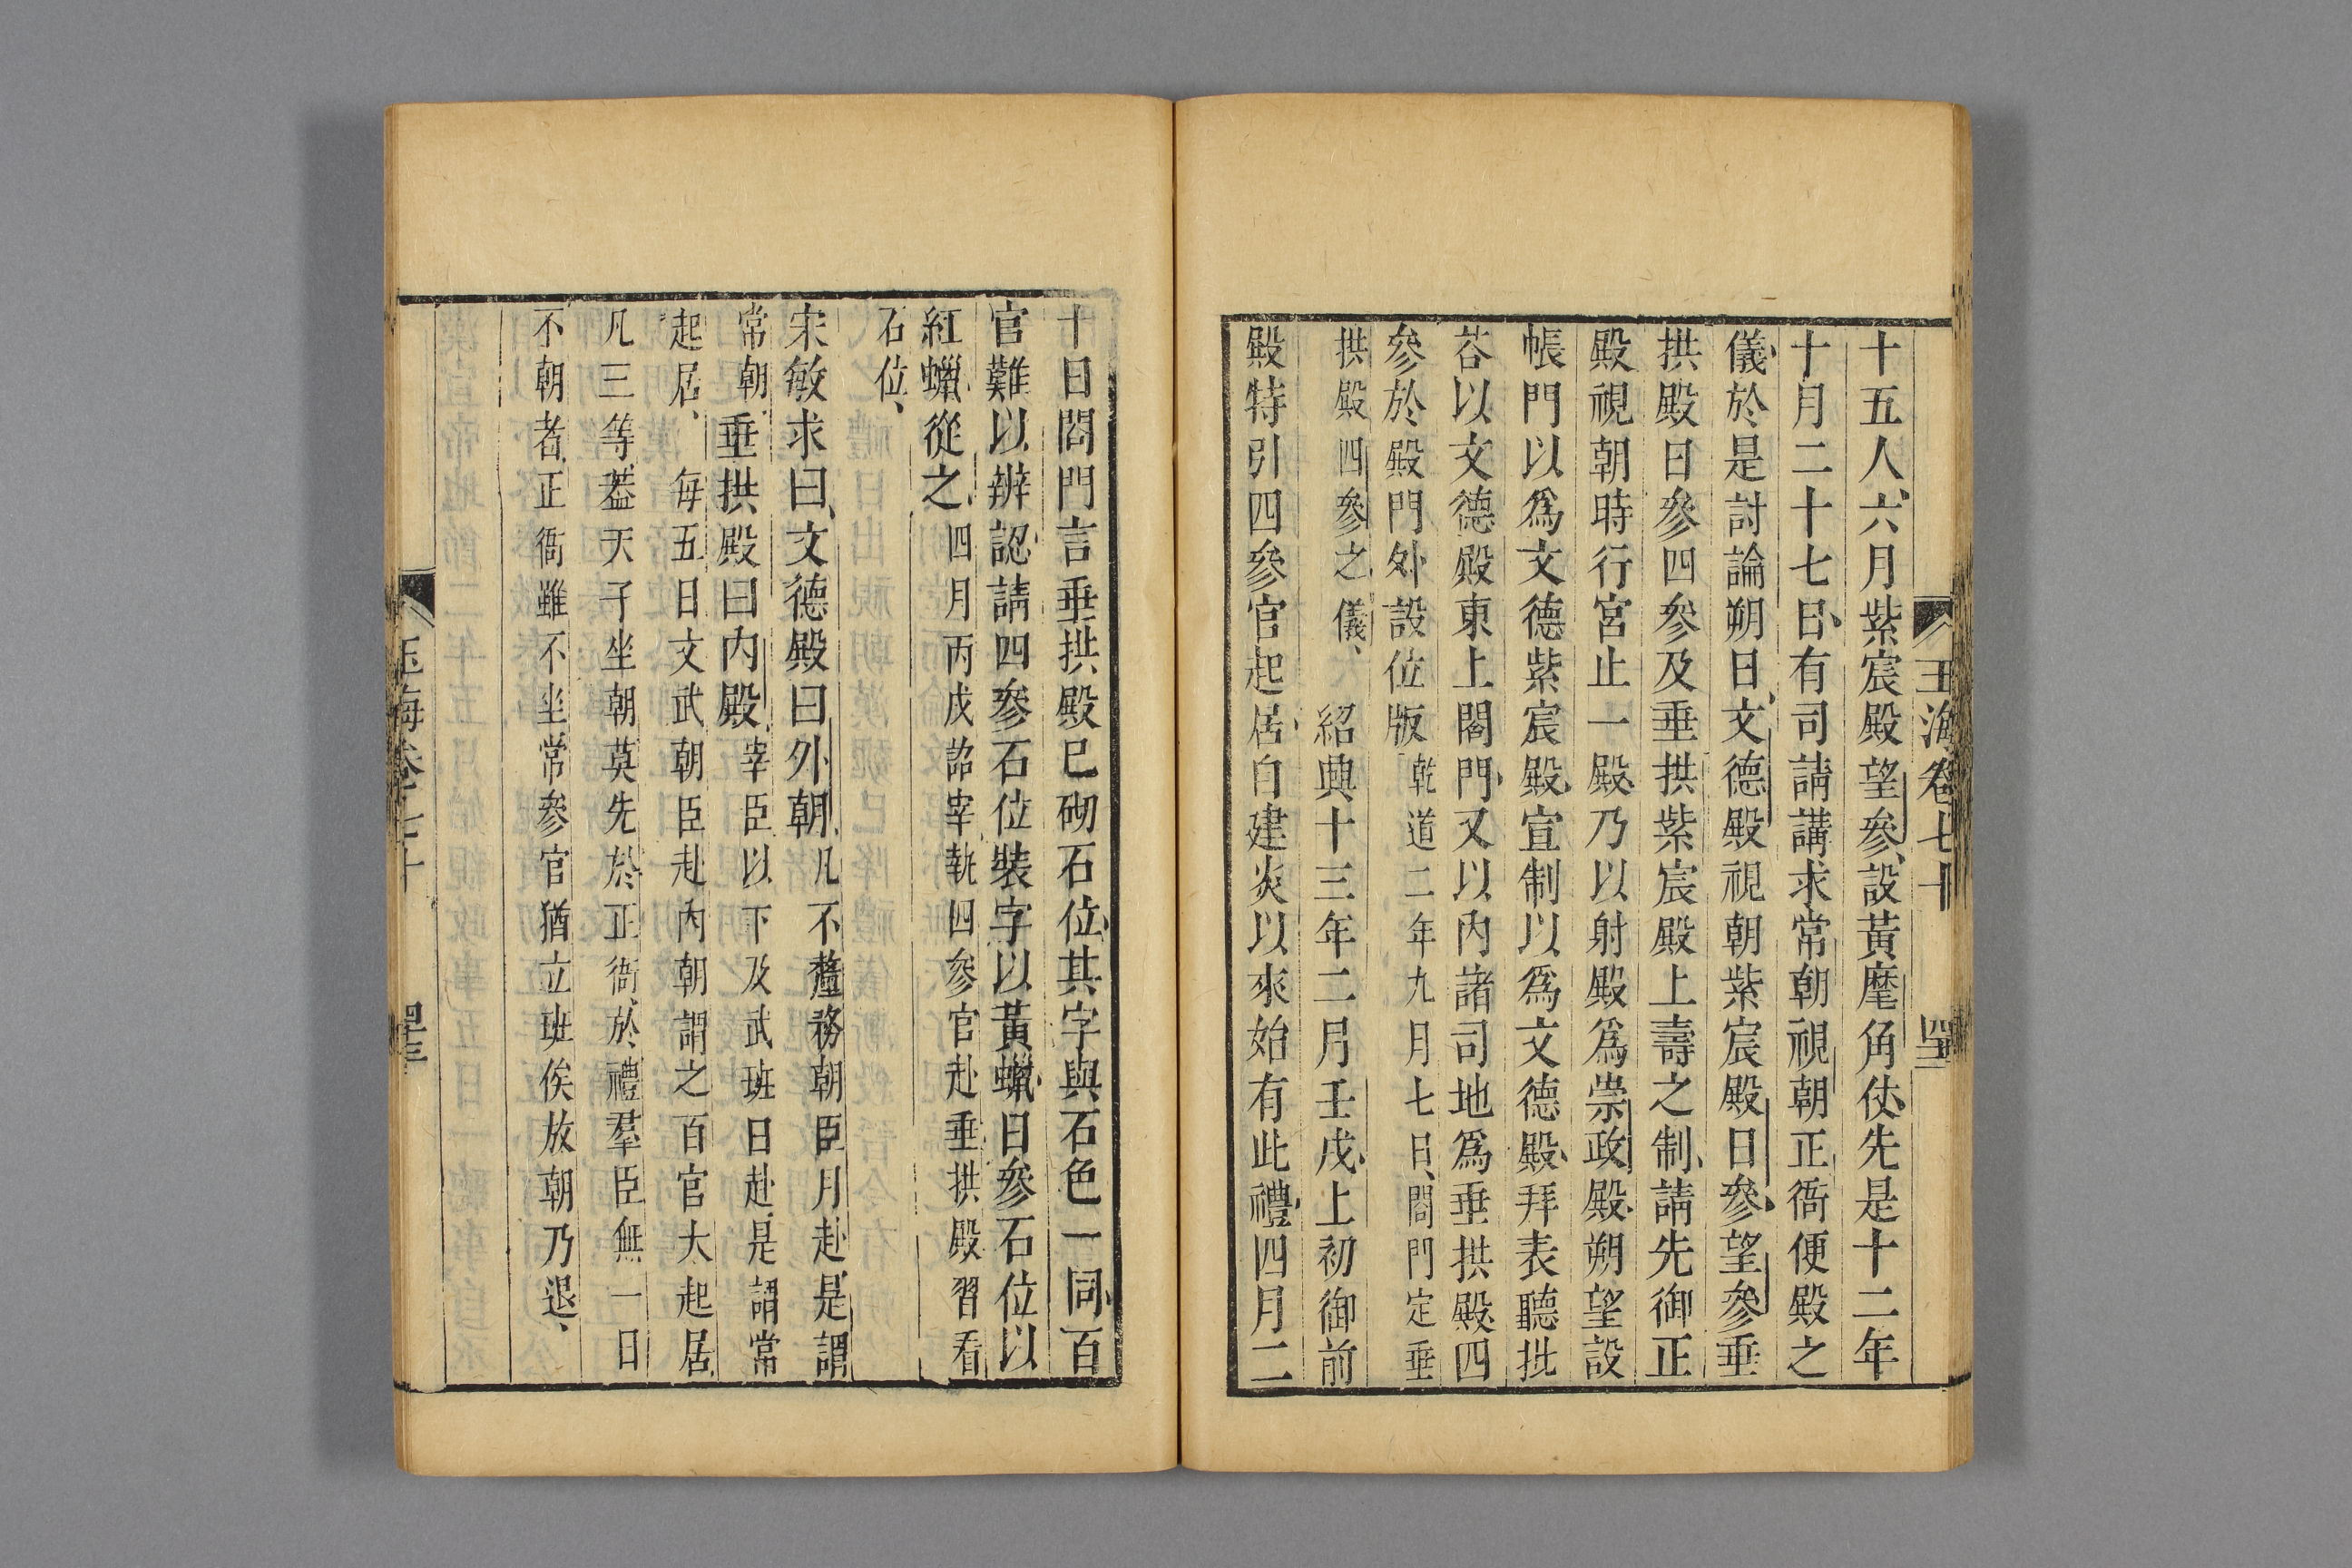 玉海卷七十
十五人六月紫宸殿望參設黃麾角仗先是十二年
十月二十七日有司請講求常朝視朝正衙便殿之
儀於是討論朔日文德殿視朝紫宸殿日參望參垂
拱殿日參四參及垂拱紫宸殿上壽之制請先御正
殿視朝時行宮止一殿乃以射殿爲崇政殿朔望設
帳門以爲文德紫宸殿宣制以爲文德殿拜表聽批
荅以文德殿東上閤門又以內諸司地爲垂拱殿四
參於殿門外設位版乾道二年九月七日閤門定垂
拱殿四參之儀紹興十三年二月壬戌上初御前
殿特引四參官起居自建炎以來始有此禮四月二
十日閤門言垂拱殿已砌石位其字與石色一同百
官難以辨認請四參石位裝字以黃蠟日參石位以
紅蠟從之四月丙戌詔宰執四參官赴垂拱殿習看
石位
宋敏求曰文德殿曰外朝凡不釐務朝臣月赴是謂
常朝垂拱殿曰內殿宰臣以下及武班日赴是謂常
起居每五日文武朝臣赴內朝謂之百官大起居
凡三等葢天子坐朝莫先於正衙於禮羣臣無一日
不朝者正衙雖不坐常參官猶立班俟放朝乃退
玉海卷七十